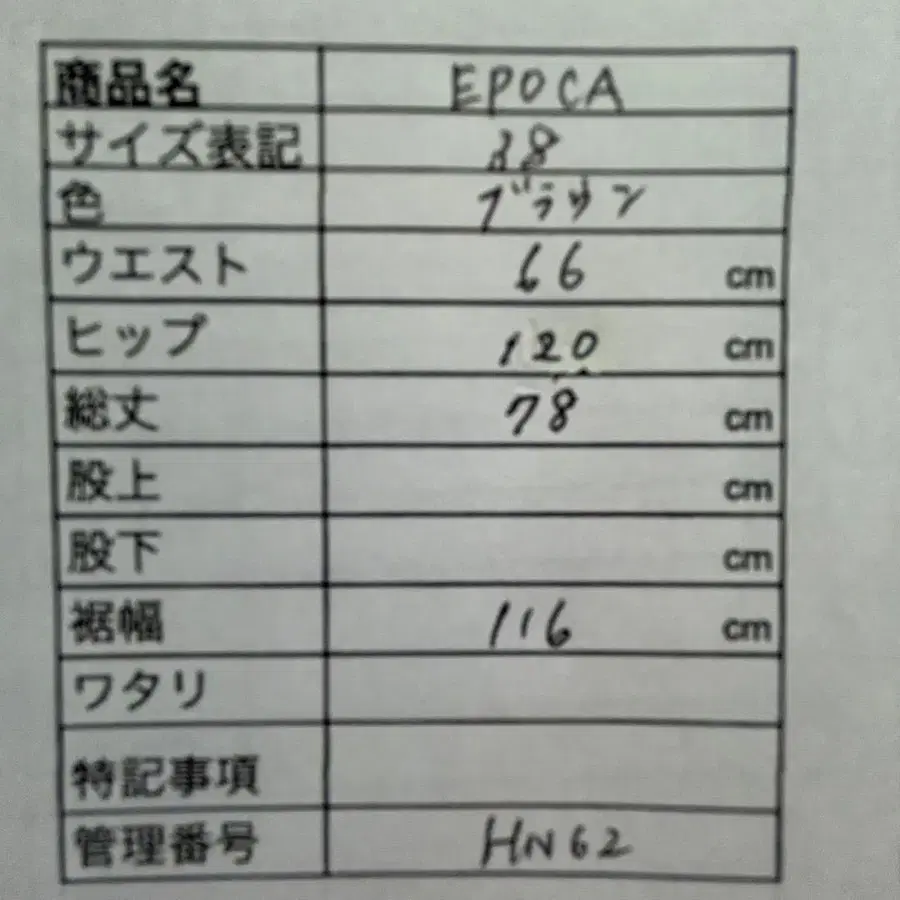 商品名 EPOCA
サイズ表記 38
色 ブラウン
ウエスト 66 cm
ヒップ 120 cm
総丈 78 cm
股上 cm
股下 cm
裾幅 116 cm
ワタリ
特記事項
管理番号 HN62